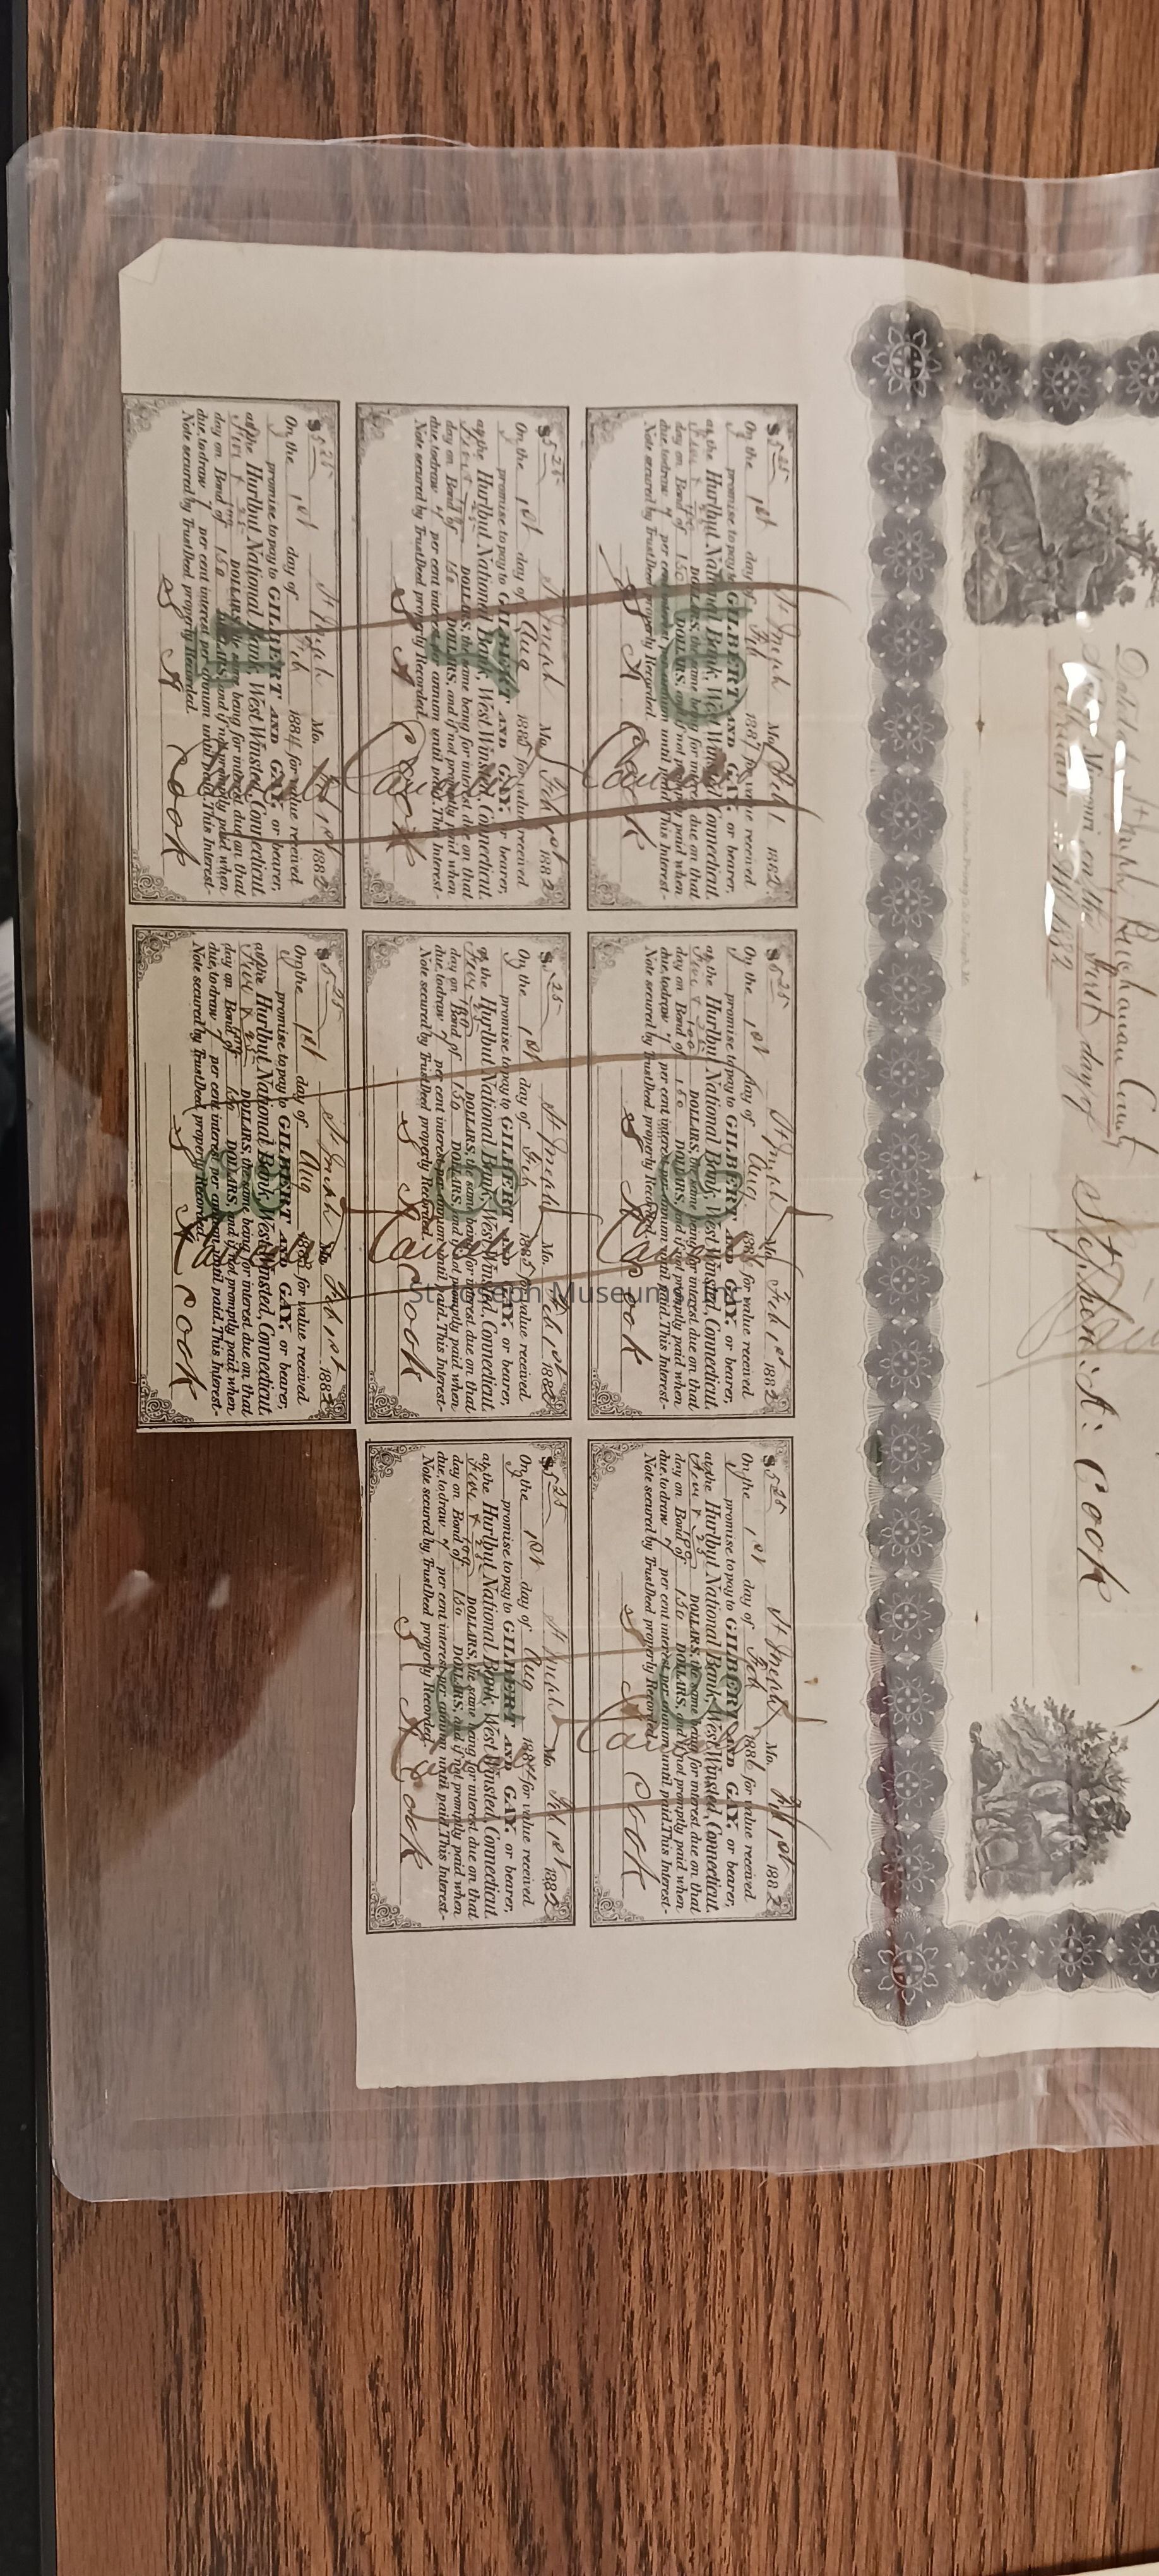 Dated at St Joseph Buchanan County
State of Missouri on the first day of
February A.D. 1882
Stephen A. Cook
$5 25 St Joseph Mo. Feb 1 1882
On the 1st day of Feb 1887 for value received
I promise to pay to GILBERT AND GAY, or bearer,
at the Hurlbut National Bank, West Winsted, Connecticut,
Five & 25/100 DOLLARS, the same being for interest due on that
day on Bond of 150 DOLLARS, and if not promptly paid when
due, to draw 7 per cent interest per annum until paid. This Interest-
Note secured by Trust Deed properly Recorded.
S A Cook
$5 25 St Joseph Mo. Feb 1st 1882
On the 1st day of Aug 1886 for value received
I promise to pay to GILBERT AND GAY, or bearer,
at the Hurlbut National Bank, West Winsted, Connecticut,
Five & 25/100 DOLLARS, the same being for interest due on that
day on Bond of 150 DOLLARS, and if not promptly paid when
due, to draw 7 per cent interest per annum until paid. This Interest-
Note secured by Trust Deed properly Recorded.
S A Cook
$5 25 St Joseph Mo. Feb 1st 1882
On the 1st day of Feb 1886 for value received
I promise to pay to GILBERT AND GAY, or bearer,
at the Hurlbut National Bank, West Winsted, Connecticut,
Five & 25/100 DOLLARS, the same being for interest due on that
day on Bond of 150 DOLLARS, and if not promptly paid when
due, to draw 7 per cent interest per annum until paid. This Interest-
Note secured by Trust Deed properly Recorded.
S A Cook
$5 25 St Joseph Mo. Feb 1st 1882
On the 1st day of Aug 1885 for value received
I promise to pay to GILBERT AND GAY, or bearer,
at the Hurlbut National Bank, West Winsted, Connecticut,
Five & 25/100 DOLLARS, the same being for interest due on that
day on Bond of 150 DOLLARS, and if not promptly paid when
due, to draw 7 per cent interest per annum until paid. This Interest-
Note secured by Trust Deed properly Recorded.
S A Cook
$5 25 St Joseph Mo. Feb 1st 1882
On the 1st day of Feb 1885 for value received
I promise to pay to GILBERT AND GAY, or bearer,
at the Hurlbut National Bank, West Winsted, Connecticut,
Five & 25/100 DOLLARS, the same being for interest due on that
day on Bond of 150 DOLLARS, and if not promptly paid when
due, to draw 7 per cent interest per annum until paid. This Interest-
Note secured by Trust Deed properly Recorded.
S A Cook
$5 25 St Joseph Mo. Feb 1st 1882
On the 1st day of Aug 1884 for value received
I promise to pay to GILBERT AND GAY, or bearer,
at the Hurlbut National Bank, West Winsted, Connecticut,
Five & 25/100 DOLLARS, the same being for interest due on that
day on Bond of 150 DOLLARS, and if not promptly paid when
due, to draw 7 per cent interest per annum until paid. This Interest-
Note secured by Trust Deed properly Recorded.
S A Cook
$5 25 St Joseph Mo. Feb 1st 1882
On the 1st day of Feb 1884 for value received
I promise to pay to GILBERT AND GAY, or bearer,
at the Hurlbut National Bank, West Winsted, Connecticut,
Five & 25/100 DOLLARS, the same being for interest due on that
day on Bond of 150 DOLLARS, and if not promptly paid when
due, to draw 7 per cent interest per annum until paid. This Interest-
Note secured by Trust Deed properly Recorded.
S A Cook
$5 25 St Joseph Mo. Feb 1st 1882
On the 1st day of Aug 1883 for value received
I promise to pay to GILBERT AND GAY, or bearer,
at the Hurlbut National Bank, West Winsted, Connecticut,
Five & 25/100 DOLLARS, the same being for interest due on that
day on Bond of 150 DOLLARS, and if not promptly paid when
due, to draw 7 per cent interest per annum until paid. This Interest-
Note secured by Trust Deed properly Recorded.
S A Cook
St. Joseph Museums